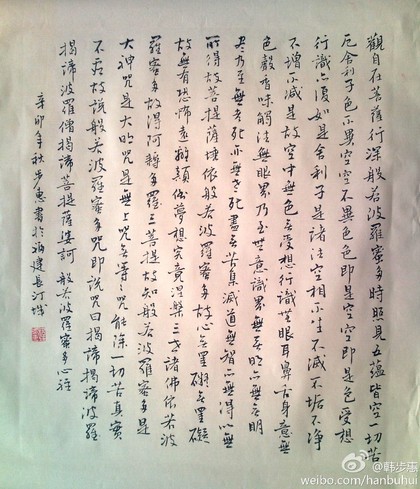 觀自在菩薩行深般若波羅蜜多時照見五蘊皆空一切苦
厄舍利子色不異空空不異色色即是空空即是色受想
行識亦復如是舍利子是諸法空相不生不滅不垢不净
不增不減是故空中無色無受想行識無眼耳鼻舌身意無
色聲香味觸法無眼界乃至無意識界無無明亦無無明
盡乃至無老死亦無老死盡無苦集滅道無智亦無得以無
所得故菩提薩埵依般若波羅蜜多故心無罣礙無罣礙
故無有恐怖遠離顛倒夢想究竟涅槃三世諸佛依若波
羅蜜多故得阿耨多羅三菩提故知般若波羅蜜多是
大神咒是大明咒是無上咒無等咒能除一切苦真實
不虛故說般若波羅蜜多咒即說咒曰揭諦揭諦波羅
揭諦波羅僧揭諦菩提薩婆訶般若波羅蜜多心經
辛卯年秋步惠書於福建長汀
@韩步惠
weibo.com/hanbuhui